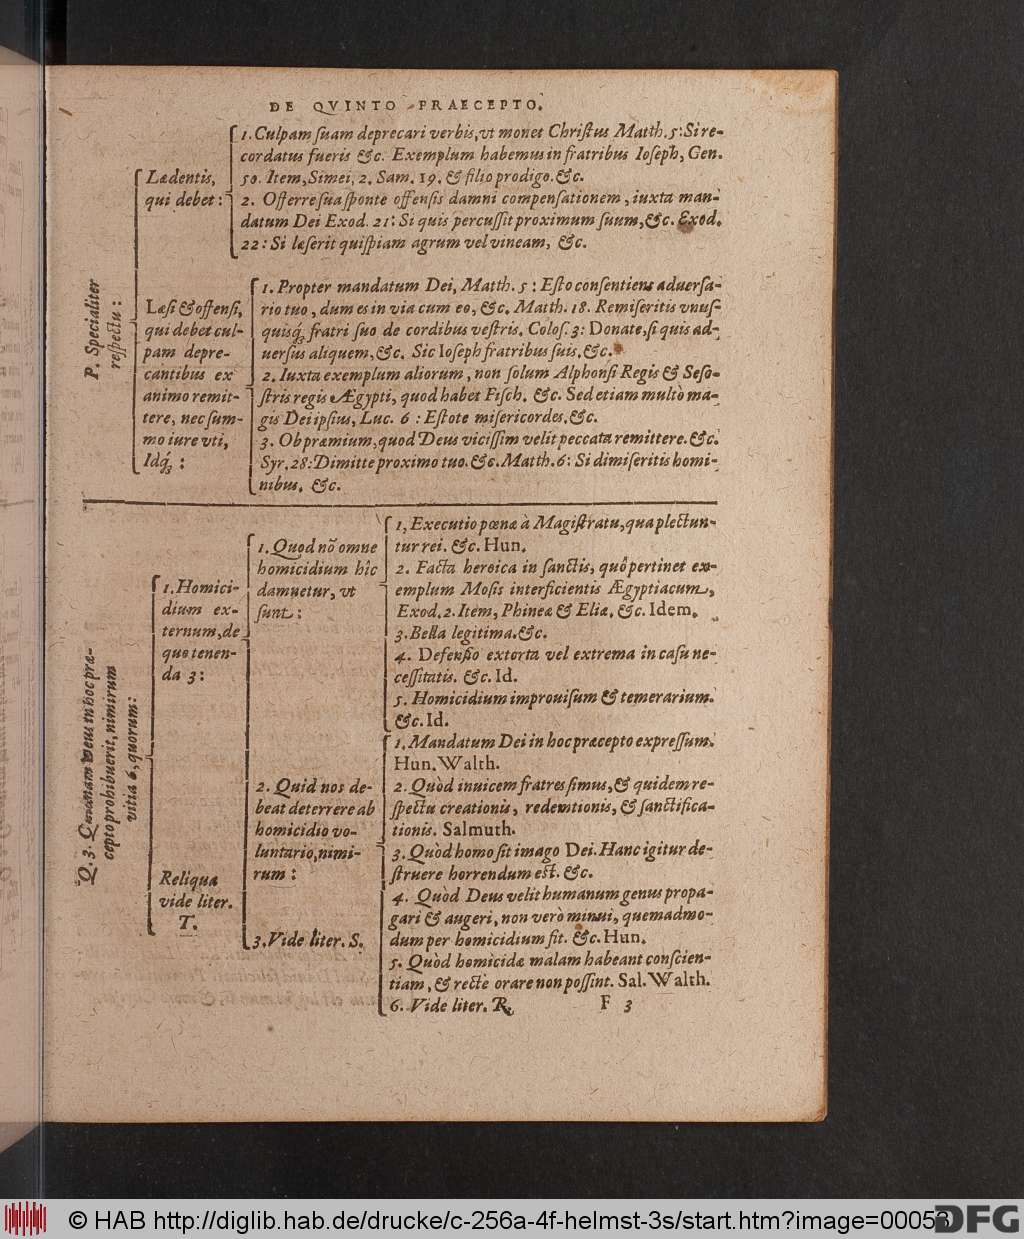 DE QVINTO PRAECEPTO.
P. Specialiter
respectu:
Lædentis,
qui debet:
1. Culpam suam deprecari verbis, vt monet Christus Matth. 5: Si re-
cordatus fueris &c. Exemplum habemus in fratribus Ioseph, Gen.
50. Item, Simei, 2. Sam. 19. & filio prodigo. &c.
2. Offerre sua sponte offensis damni compensationem, iuxta man-
datum Dei Exod. 21: Si quis percussit proximum suum, &c. Exod.
22: Si læserit quispiam agrum vel vineam, &c.
Læsi & offensi,
qui debet cul-
pam depre-
cantibus ex
animo remit-
tere, nec sum-
mo iure vti,
Idq́;:
1. Propter mandatum Dei, Matth. 5: Esto consentiens aduersa-
rio tuo, dum es in via cum eo, &c. Matth. 18. Remiseritis vnus-
quisq́; fratri suo de cordibus vestris. Colos. 3: Donate, si quis ad-
uersus aliquem, &c. Sic Ioseph fratribus suis. &c.
2. Iuxta exemplum aliorum, non solum Alphonsi Regis & Seso-
stris regis Ægypti, quod habet Fisch. &c. Sed etiam multò ma-
gis Dei ipsius, Luc. 6: Estote misericordes, &c.
3. Ob præmium, quod Deus vicissim velit peccata remittere. &c.
Syr. 28: Dimitte proximo tuo. &c. Matth. 6: Si dimiseritis homi-
nibus. &c.
Q. 3. Quænam Deus in hoc præ-
cepto prohibuerit, nimirum
vitia 6, quorum:
1. Homici-
dium ex-
ternum, de
quo tenen-
da 3:
1. Quod nõ omne
homicidium hîc
damnetur, vt
sunt:
1, Executio pœnæ à Magistratu, qua plectun-
tur rei. &c. Hun.
2. Facta heroica in sanctis, quô pertinet ex-
emplum Mosis interficientis Ægyptiacum,
Exod. 2. Item, Phineæ & Eliæ, &c. Idem.
3. Bella legitima. &c.
4. Defensio extorta vel extrema in casu ne-
cessitatis. &c. Id.
5. Homicidium improuisum & temerarium.
&c. Id.
2. Quid nos de-
beat deterrere ab
homicidio vo-
luntario, nimi-
rum:
1. Mandatum Dei in hoc præcepto expressum.
Hun. Walth.
2. Quòd inuicem fratres simus, & quidem re-
spectu creationis, redemtionis, & sanctifica-
tionis. Salmuth.
3. Quòd homo sit imago Dei. Hanc igitur de-
struere horrendum est. &c.
4. Quòd Deus velit humanum genus propa-
gari & augeri, non verò minui, quemadmo-
dum per homicidium fit. &c. Hun.
5. Quòd homicidæ malam habeant conscien-
tiam, & rectè orare non possint. Sal. Walth.
6. Vide liter. R.
3. Vide liter. S.
Reliqua
vide liter.
T.
F 3
© HAB http://diglib.hab.de/drucke/c-256a-4f-helmst-3s/start.htm?image=00053
DFG